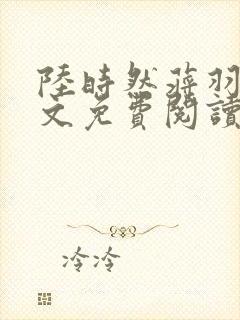 陸時然蔣羽
文免費閱讀
冷冷